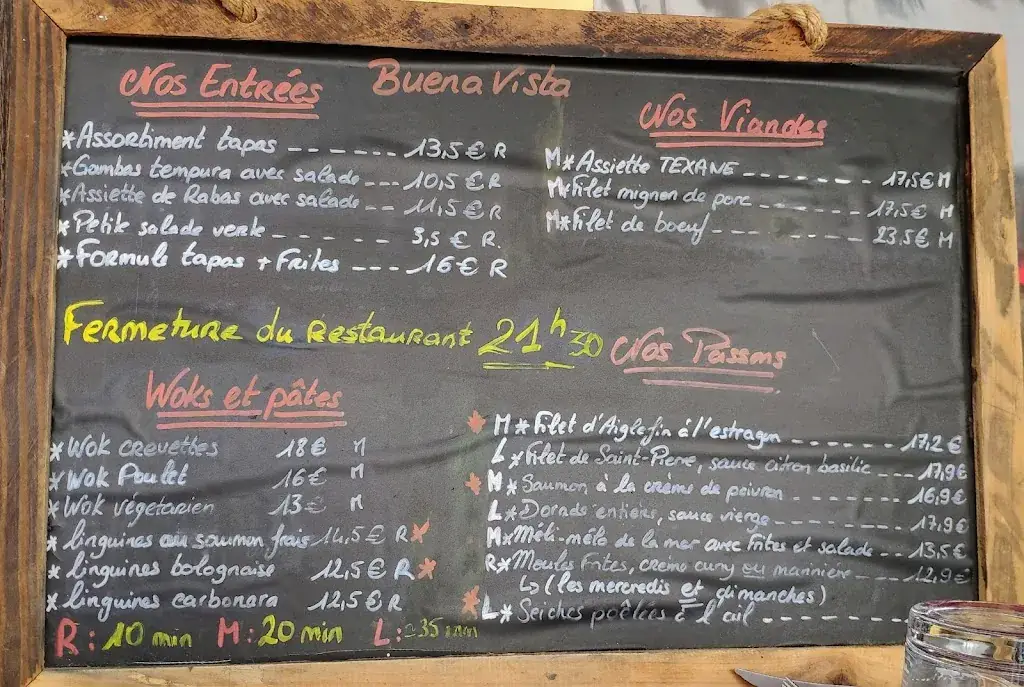 Buena Vista
Nos Entrées
*Assortiment tapas ------ 13,5 € R
*Gambas tempura avec salade --- 10,5 € R
*Assiette de Rabas avec salade ---- 11,5 € R
*Petite salade verte ------ 3,5 € R.
*Formule tapas + Frites --- 16 € R
Nos Viandes
M*Assiette TEXANE -------- 17,5€ M
M*Filet mignon de porc -------- 17,5€ M
M*Filet de boeuf -------- 23,5€ M
Fermeture du Restaurant 21h30
Woks et pâtes
*Wok crevettes 18€ M
*Wok Poulet 16€ M
*Wok végétarien 13€ M
*linguines au saumon frais 14,5€ R*
*linguines bolognaise 12,5€ R*
*linguines carbonara 12,5€ R
R: 10 min M: 20 min L: 35 min
Nos Poissons
* M*Filet d'Aiglefin à l'estragon -------- 17,2 €
L*Filet de Saint-Pierre, sauce citron basilic --- 17,9€
* M*Saumon à la crème de poivron -------- 16,9€
L*Dorade entière, sauce vierge -------- 17,9€
M*Méli-mélo de la mer avec frites et salade --- 13,5€
R*Moules Frites, crème curry ou marinière --- 12,9€
↳ (les mercredis et dimanches)
* L*Seiches poêlées à l'ail --------